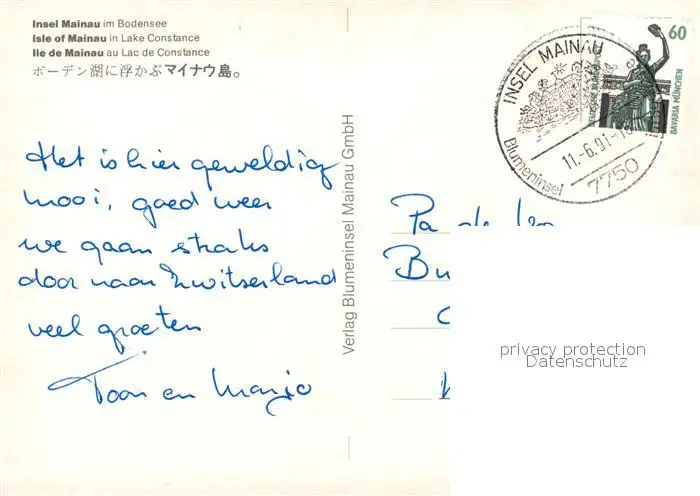 Insel Mainau im Bodensee
Isle of Mainau in Lake Constance
Ile de Mainau au Lac de Constance
ボーデン湖に浮かぶマイナウ島。
Het is hier geweldig
mooi, goed weer
we gaan straks
door naar Zwitserland
veel groeten
Toon en Marjo
Verlag Blumeninsel Mainau GmbH
INSEL MAINAU
Blumeninsel
11.-6.91-
7750
60
DEUTSCHE BUNDESPOST
BAVARIA MÜNCHEN
Pa de
Bu
privacy protection
Datenschutz